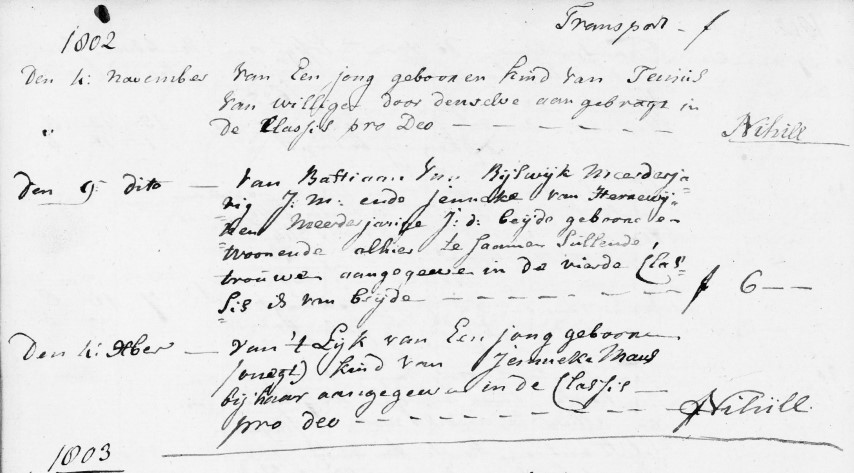 Transport - f
1802
Den 4: november Van Een jong gebooren kind van Teunis
van willigen door denselve aangebragt in
" de Classis pro Deo - - - - - - Nihill
Den 9: dito - Van Bastiaan Van Rijswijk Meerderja=
rig J: m: ende Jenneke van Hernewij=
ken Meerderjarige J: d: beijde geboore en
woonende alhier te saamen Sullende
trouwen aangegeven in de vierde Clas=
sis is van beijde - - - - - - f 6 -
Den 4: Xber - van 't Lijk van Een jong geboore
(onegt) kind van Jenneke Maus
bij haar aangegeven in de Classis
pro deo - - - - - - Nihill.
1803